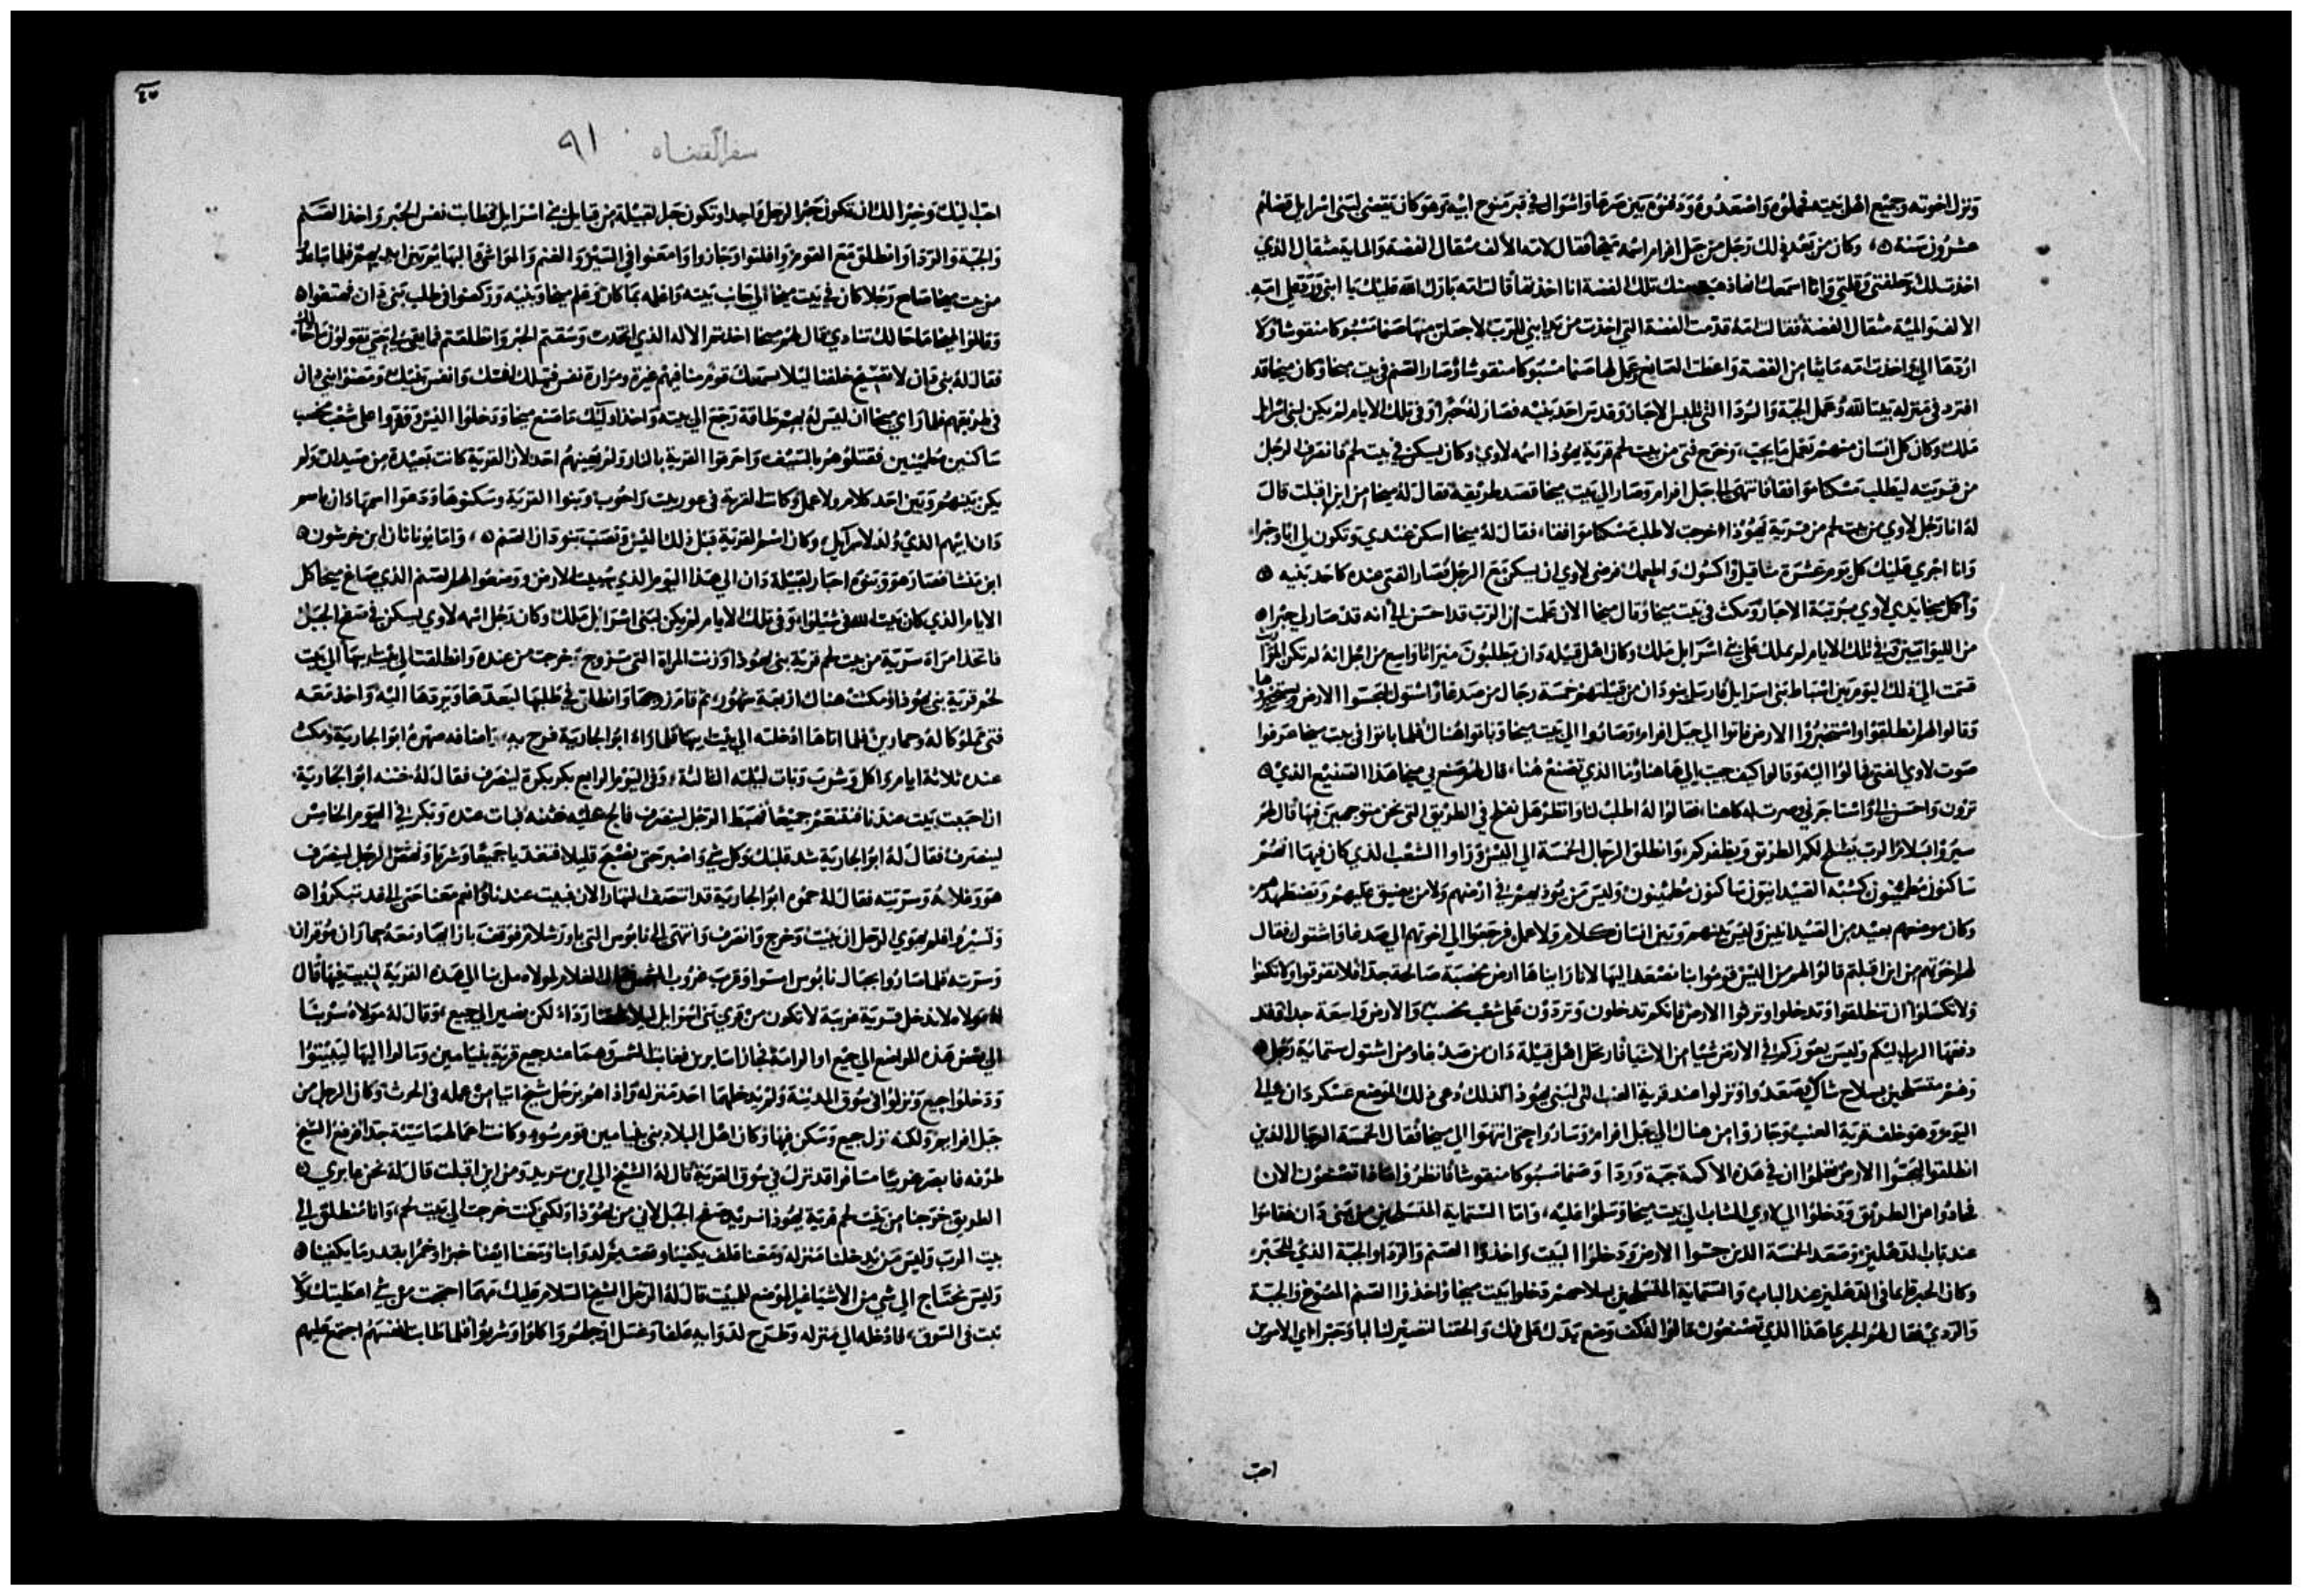 ونزل اخوته وجميع اهل بيته فحملوه واصعدوه ودفنوه بين صرعا واشتوال في قبر منوح ابيه وهو كان يقضى لبنى اسرايل قضاهم
عشرون سنة ه وكان من بعد ذلك رجل من جبل افرام اسمه ميخا فقال لامه الألف مثقال الفضة والماية مثقال الذي
اخذت لك وحلفتي وقلتي وانا اسمعك تلك الفضة انا اخذتها قالت امه بارك الله عليك يا ابنى ورد على امه
الالف والمية مثقال الفضة فقالت امه قدمت الفضة التي اخذت من يد ابني للرب لاجعلن منها صنما مسبوكا منقوشا ولا
اردها الي واخذت امه مائتا من الفضة واعطت الصايغ وعمل لها صنما مسبوكا منقوشا وصار الصنم في بيت ميخا وكان ميخا قد
افرد في منزله بيتا لله وعمل الجبة والردا التي للبس الاحبار وقدس احد بنيه فصار له حبرا وفي تلك الايام لم يكن لبنى اسرايل
ملك وكان كل انسان منهم يعمل ما يجب، وخرج فتى من بيت لحم قرية يهوذا اسمه لاوي وكان يسكن في بيت لحم فانصرف الرجل
من قريته ليطلب مسكنا موافقا فانتهى الى جبل افرام وصار الي بيت ميخا قصد طريقه فقال له ميخا من اين اقبلت قال
له انا رجل لاوي من بيت لحم من قرية يهوذا خرجت لاطلب مسكنا موافقا، فقال له ميخا اسكن عندي وتكون لي ابا وحبرا
وانا اجري عليك كل يوم عشرة مثاقيل واكسوك واطعمك فرضى لاوي ان يسكن مع الرجل فصار الفتى عنده كاحد بنيه ه
وأكمل ميخا يدي لاوي بمرتبة الاحبار ومكث في بيت ميخا وقال ميخا الان علمت ان الرب قد احسن الي أنه قد صار لي حبرا ه
من الليوانيين وفي تلك الايام لم يملك على بني اسرايل ملك وكان اهل قبيلة دان يطلبون ميراثا واسع من اجل انه لم تكن الميراث
قسمت الي ذلك اليوم بين اسباط بنى اسرايل فارسل بنو دان من قبيلتهم خمسة رجال من صدعا واشتول ليجسوا الارض ويستخبروها
وقالوا لهم انطلقوا واستخبروا الارض فاتوا الي جبل افرام وصاروا الي بيت ميخا وباتوا هناك فلما باتوا في بيت ميخا عرفوا
صوت لاوي الفتى فمالوا اليه وقالوا كيف جيت الي هاهنا وما الذي تصنع هنا، قال لهم صنع بي ميخا هذا الصنيع الذي ه
ترون واحسن الي واستاجرني وصرت له كاهنا، فقالوا له اطلب لنا وانظر هل نفلح في الطريق التى نحن متوجهين فيها قال لهم
سيروا بسلام الرب يصلح لكم الطريق ويظفركم وانطلق الرجال الخمسة الي اليش وراوا الشعب الذي كان فيها انهم
ساكنون مطمئنون كشبه الصيدانيون ساكنون مطمئنون وليس من يوذيهم في ارضهم ولا من يضيق عليهم ويضطهدهم
وكان موضعهم بعيد من الصيدانيين وليس بينهم وبين انسان كلام ولا عمل فرجعوا الي اخوتهم الي صدعا واشتول فقال
لهم اخوتهم من اين اقبلتم قالوا لهم من اليش قوموا بنا نصعد اليها لانا راينا ها ارض مخصبة صالحة جدا فلا تفرقوا وكانكم
ولا تكسلوا ان تنطلقوا وتدخلوا وترثوا الارض فانكم تدخلون وتردون على شعب مخصب والارض واسعة جدا وقد
دفعها الرب اليكم وليس يعوزكم في الارض شيا من الاشيا فارتحل اهل قبيلة دان من صدعا ومن اشتول ستماية رجل ه
وهم متسلحين بسلاح شاكي فصعدوا ونزلوا عند قرية العنب التي لبنى يهوذا كذلك دعى ذلك الموضع عسكر دان الي
اليوم وهو خلف قرية العنب وجازوا من هناك الي جبل افرام وساروا حتى انتهوا الي ميخا فقال الخمسة الرجال الذين
انطلقوا ليجسوا الارض تعلموا ان في هذه الاكمة جبة وردا وصنما مسبوكا منقوشا فانظروا ماذا تصنعون الان
فحادوا من الطريق ودخلوا الي لاوي الشاب الي بيت ميخا وسلموا عليه، واما الستماية المتسلحين من بنى دان فقاموا
عند باب الدهليز وصعد الخمسة الذين جسوا الارض ودخلوا البيت واخذوا الصنم والردا والجبة الذي للحبر
وكان الحبر قايما في الدهليز عند الباب والستماية المتسلحين بسلاحهم دخلوا بيت ميخا واخذوا الصنم المصوغ والجبة
والردي فقال لهم الحبر ما هذا الذي تصنعون قالوا له اكفف وضع يدك على فمك والحقنا لتصير لنا ابا وحبرا اي الامرين
احب
سفر القضاه ٩١
احب اليك وخير لك ان تكون حبرا لرجل واحد او تكون حبرا لقبيلة من قبايل بني اسرايل فطابت نفس الحبر واخذ الصنم
والجبة والردا وانطلق مع القوم واقبلوا وجازوا وامعنوا في السير والغنم والمواشي والبهايم بين ايديهم فلما تباعدوا
من بيت ميخا صاح رجلا كان في بيت ميخا الي جانب بيته واعلمه بما كان وعلم ميخا وبنيه وركضوا في طلب بنى دان فصعقوا ه
وقالوا لميخا ما حالك تنادي قال لهم ميخا اخذتم الاله الذي اتخذت وسقتم الحبر وانطلقتم فما بقي لي حتى تقولون ما حالك
فقال له بني دان لا تصيح خلفنا ليلا يسمعك قوم منا فيهم غيرة ومرارة نفس فتهلك نفسك وانفس بيتك ومضوا بني دان
في طريقهم فلما راي ميخا ان ليس له بهم طاقة رجع الي بيته واخذ اوليك ما صنع ميخا ودخلوا اليش وقهروا على شعب مخصب
ساكنين مطمئنين فقتلوهم بالسيف واحرقوا القرية بالنار ولم يعينهم احد لان القرية كانت بعيدة من صيدان ولم
يكن بينهم وبين احد كلام ولا عمل وكانت القرية في غور بيت راحوب وبنوا القرية وسكنوها ودعوا اسمها دان باسم
دان ابيهم الذي ولد لاسرايل وكان اسم القرية قبل ذلك اليش ونصب بنو دان الصنم ه واما يوناثان ابن خرشون ه
ابن منشا فصار هو وبنوه احبار لقبيلة دان الي هذا اليوم الذي سبيت الارض ووضعوا لهم الصنم الذي صاغ ميخا كل
الايام الذي كان بيت الله في شيلوا، وفي تلك الايام لم يكن لبنى اسرايل ملك وكان رجل اسمه لاوي يسكن في صفح الجبل
فاتخذ امراة سرية من بيت لحم قرية بنى يهوذا وزنت المراة التي تزوج وخرجت من عنده وانطلقت الي بيت ابيها الي بيت
لحم قرية بني يهوذا ومكثت هناك اربعة شهور ثم قام زوجها وانطلق في طلبها ليعدها ويردها اليه واخذ معه
فتى مملوكا له وحمارين فلما اتاها ادخلته الي بيت ابيها فلما راه ابو الجارية فرح به واضافه صهره ابو الجارية ومكث
عنده ثلاثة ايام واكل وشرب وبات ليلته الثالثة وفي اليوم الرابع بكر بكرة لينصرف فقال له ختنه ابو الجارية
ان احببت بيت عندنا فتنعم جميعا فنهض الرجل لينصرف فالح عليه ختنه فبات عنده وبكر في اليوم الخامس
لينصرف فقال له ابو الجارية شد قلبك وكل شي واصبر حتى نضيع قليلا فتغديا جميعا وشربا ونهض الرجل لينصرف
هو وغلامه وسريته فقال له حموه ابو الجارية قد انتصف النهار الان فبيت عندنا وانعم معنا حتى الى غد تبكروا ه
وتسيروا فلم يهوي الرجل ان يبيت وخرج وانصرف وانتهى الى يابوس التى هي اورشلام فوقف بازايها ومعه حماران موقران
وسريته فلما صاروا بجبال يابوس امسوا وقرب غروب الشمس قال الغلام لمولاه مل بنا الي هذه القرية لنبيت فيها قال
له مولاه لا ندخل قرية غريبة لا تكون من قري بنى اسرايل لكن نصير الي جبع، وقال له مولاه سر بنا
الي بعض هذه المواضع الي جبع او الرامة فجازا سايرين فغابت الشمس وهما عند جبع قرية بنيامين ومالوا اليها ليبيتوا
ودخلوا جبع ونزلوا في سوق المدينة ولم يدخلهما احد منزله واذا هو برجل شيخ اتيا من عمله في الحرث وكان الرجل من
جبل افرايم ولكنه نزل جبع وسكن فيها وكان اهل البلاد بني بنيامين قوم سوء وكانت اعمالهما سيئة جدا فرفع الشيخ
طرفه فابصر غريبا مسافرا قد نزل في سوق القرية قال له الشيخ الي اين تريد ومن اين اقبلت قال له نحن عابري ه
الطريق خرجنا من بيت لحم قرية يهوذا نريد صفح الجبل لاني من يهوذا ولكني كنت خرجت الي بيت لحم، وانا منطلق الي
بيت الرب وليس من يدخلنا منزله ومعنا علف يكفينا وقصيل لدوابنا ومعنا ايضا خبزا وخمرا بقدر ما يكفينا ه
وليس نحتاج الي شي من الاشيا غير الموضع للمبيت قال له الرجل الشيخ السلام عليك مهما احتجت من شي اعطيتك ولا
تبت في السوق، فادخله الي منزله وطرح لدوابه علفا وغسل ارجلهم واكلوا وشربوا فلما طابت انفسهم اجتمع عليهم